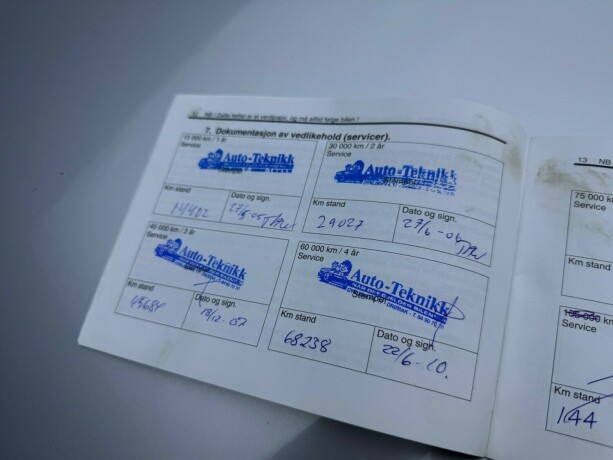 NB ! Dette heftet er et verdipapir, og må alltid følge bilen !
7. Dokumentasjon av vedlikehold (servicer).
15 000 km / 1 år
Service
Auto-Teknikk
Km stand
14402
Dato og sign.
27/6-05
30 000 km / 2 år
Service
Auto-Teknikk
Km stand
29027
Dato og sign.
27/6-06
45 000 km / 3 år
Service
Auto-Teknikk
Km stand
45684
Dato og sign.
18/12-07
60 000 km / 4 år
Service
Auto-Teknikk
Stempel
Km stand
68238
Dato og sign.
22/6-10.
13 NB
75 000 km
Service
Km stand
105 000 km
Service
Km stand
144